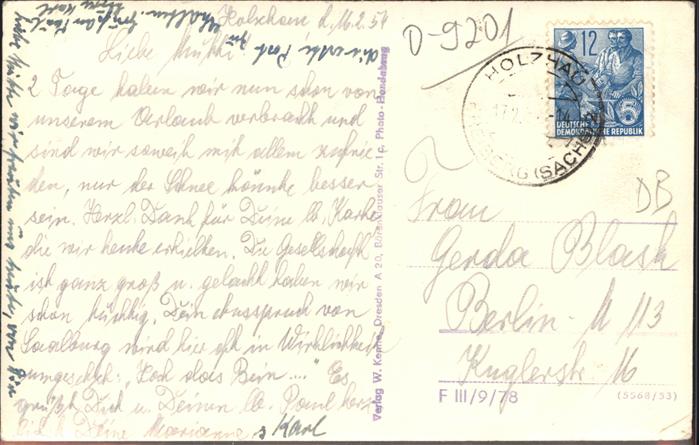 Holzhau d. 16.2.54
Liebe Mutti!
2 Tage haben wir nun schon von
unserem Urlaub verbracht und
sind wir soweit mit allem zufrie
den, nur der Schnee könnte besser
sein. Herzl. Dank für Deine lb. Karte
die wir heute erhielten. Die Gesellschaft
ist ganz groß u. gelacht haben wir
schon tüchtig. Dein Ausspruch von
Saalburg wird hier oft in Wirklichkeit
umgesetzt: "Hoch das Bein...." Es
grüßt Dich u. Deinen lb. Paul herz
lich Deine Marianne
& Karl
die erste Post
erhalten.
Karl
Verlag W. Kenne, Dresden A 20, Str. 1 c, Photo-Handabzug
D-9201
HOLZHAU
(SACHS)
12
5
DEUTSCHE
DEMOKRATISCHE REPUBLIK
DB
Frau
Gerda Blask
Berlin-N 113
Kuglerstr 16
F III/9/78
(5568/53)